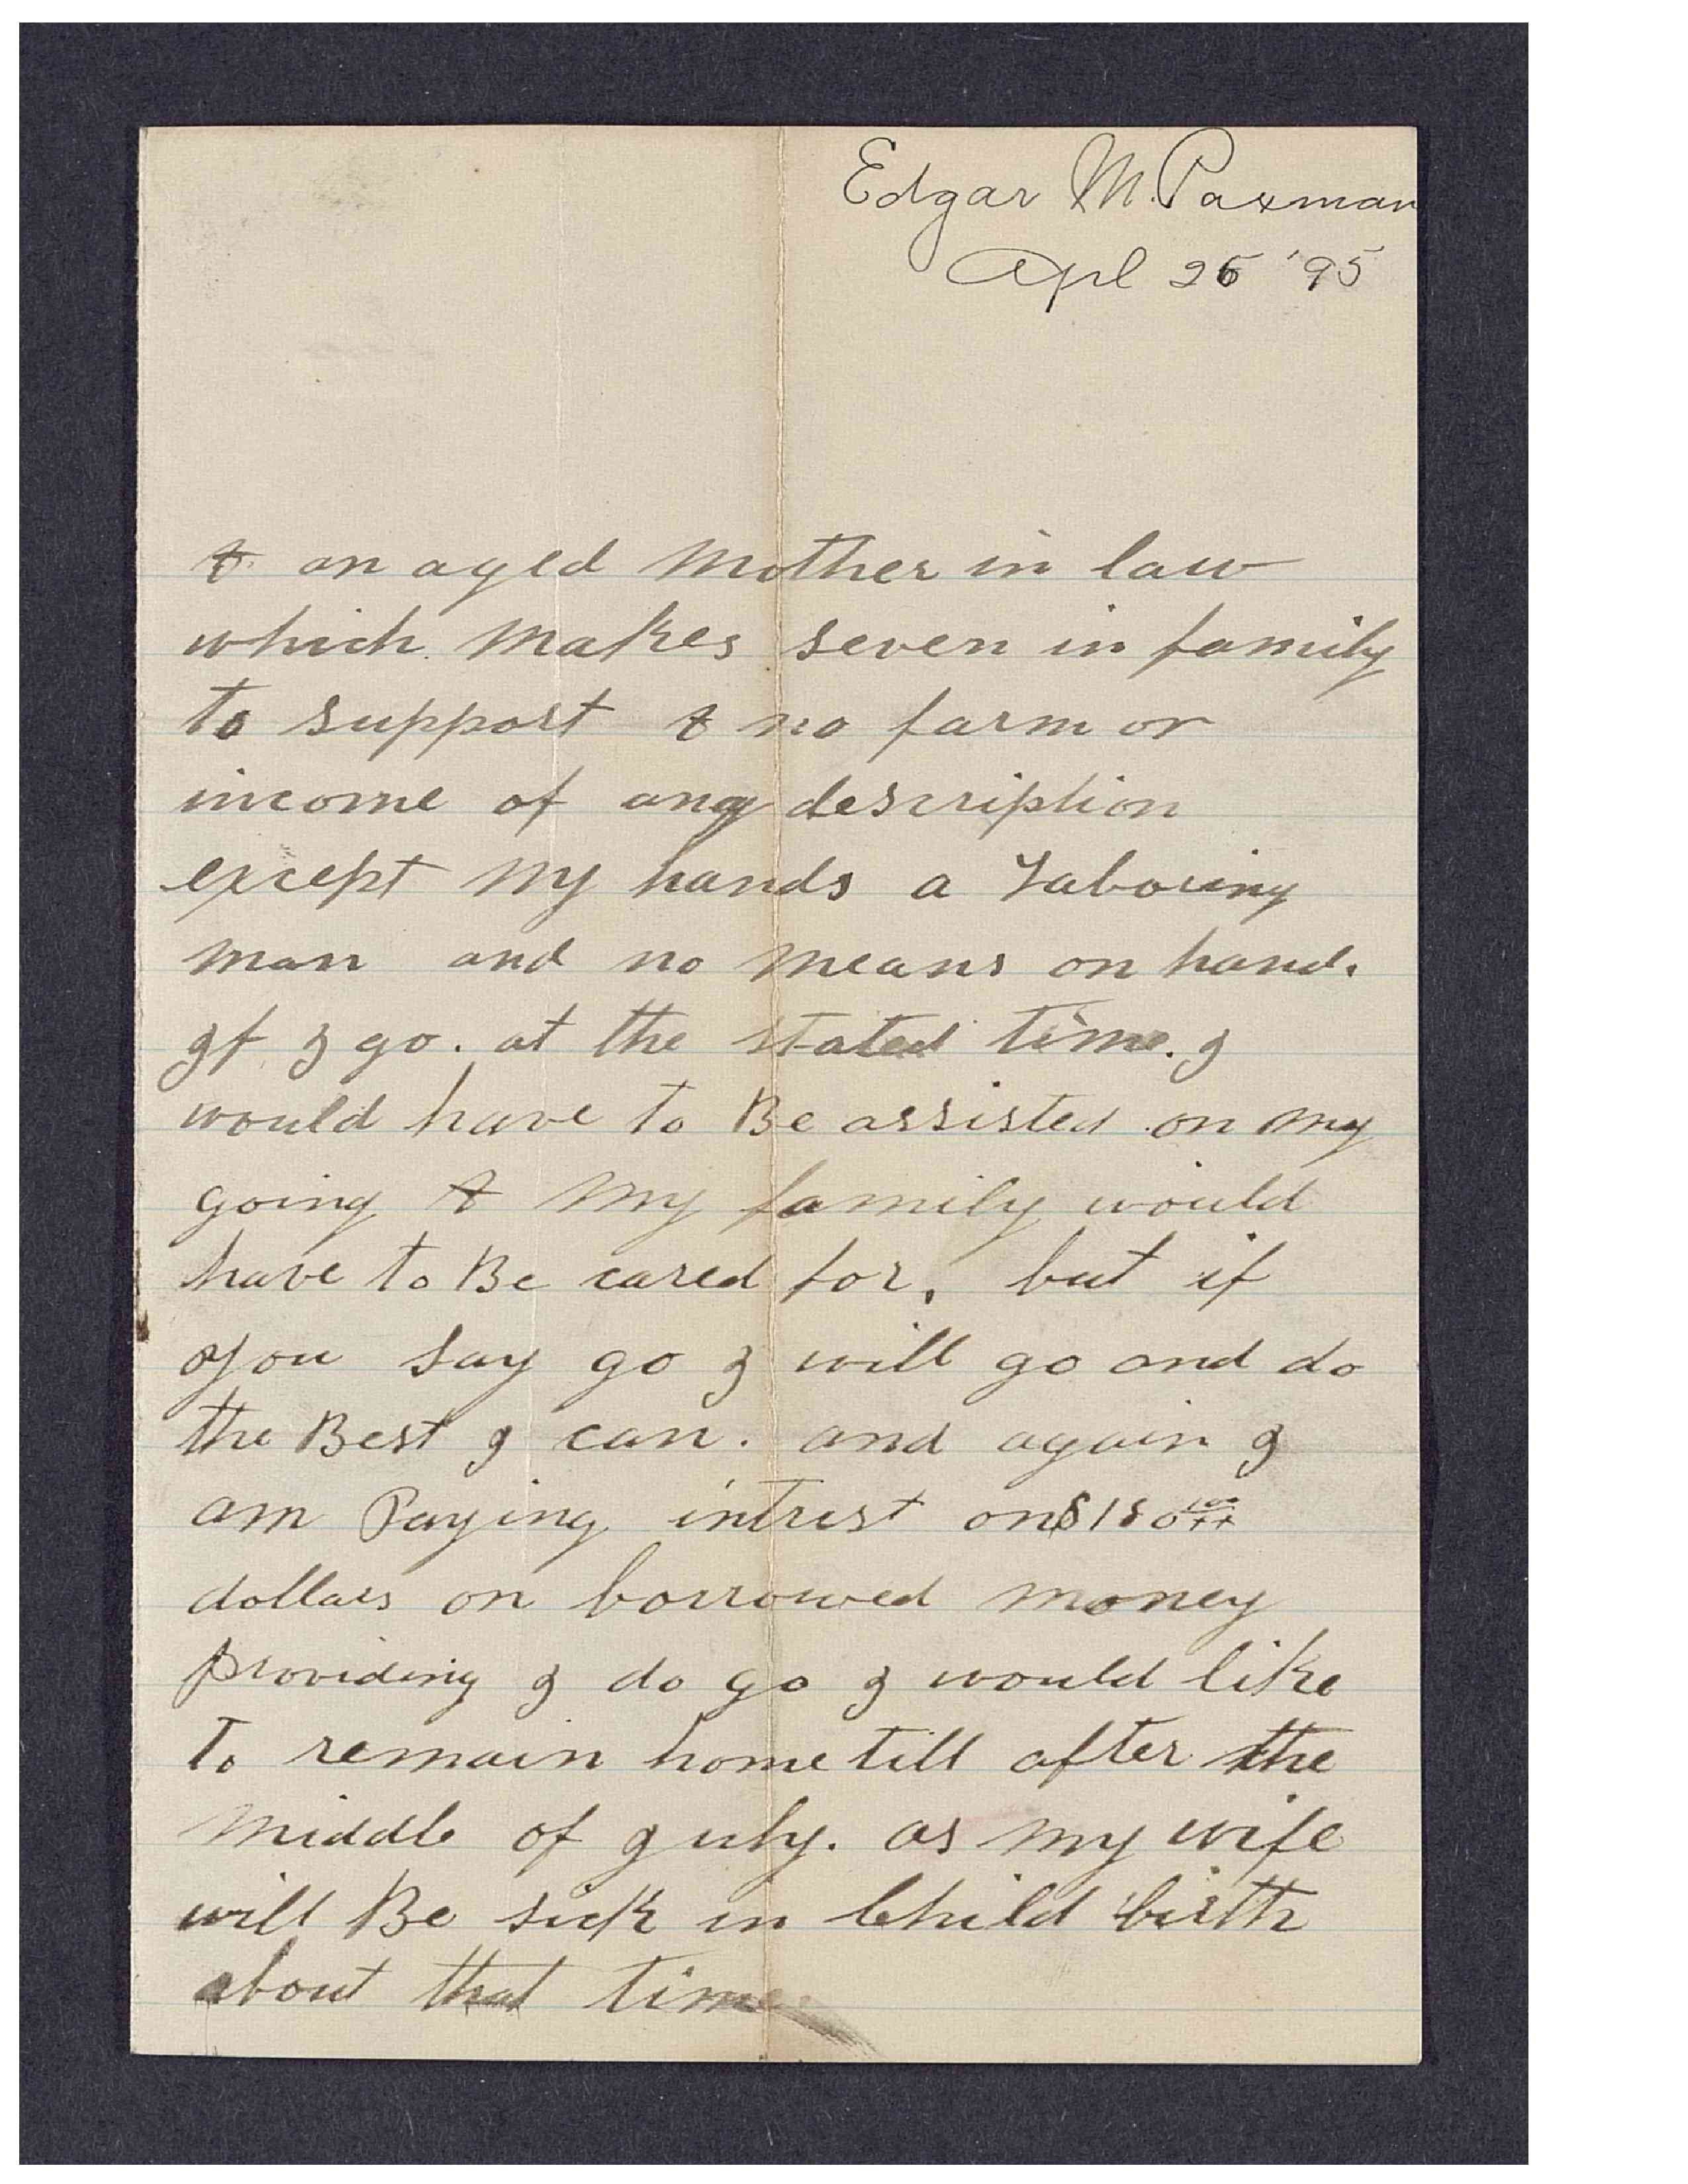 Edgar M. Paxman
Apl 26 '95
& an aged Mother in law
which Makes seven in family
to support & no farm or
income of any description
except My hands a Laboring
Man and no Means on hand.
If I go. at the stated time. I
would have to Be assisted on my
going & My family would
have to Be cared for, but if
you say go I will go and do
the Best I can. and again I
am Paying intrest on $180
dollars on borrowed money
providing I do go I would like
To remain home till after the
Middle of July. as my wife
will Be sick in Child birth
about that time